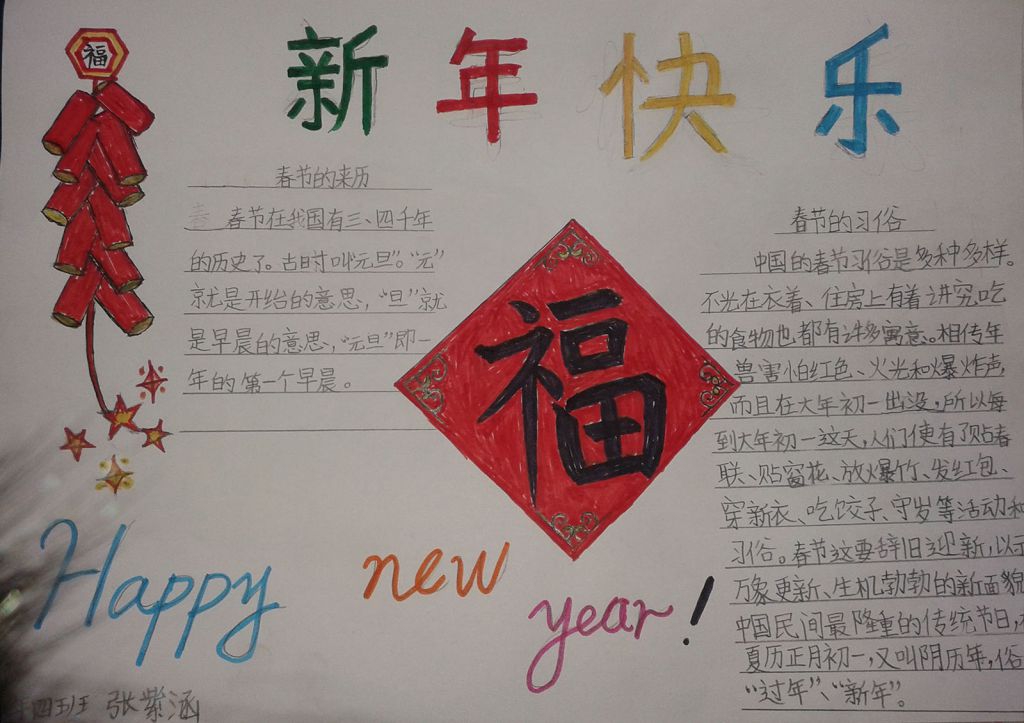 福
新年快乐
春节的来历
春节在我国有三、四千年
的历史了。古时叫“元旦”。“元”
就是开始的意思，“旦”就
是早晨的意思，“元旦”即一
年的第一个早晨。
福
春节的习俗
中国的春节习俗是多种多样。
不光在衣着、住房上有着讲究吃
的食物也都有许多寓意。相传年
兽害怕红色、火光和爆炸声，
而且在大年初一出没，所以每
到大年初一这天，人们便有了贴春
联、贴窗花、放爆竹、发红包、
穿新衣、吃饺子、守岁等活动和
习俗。春节这要辞旧迎新，以示
万象更新、生机勃勃的新面貌
中国民间最隆重的传统节日，
夏历正月初一，又叫阴历年，俗
“过年”、“新年”。
Happy new year!
四班 张紫涵